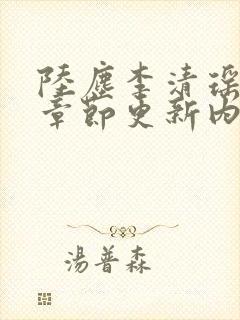 陸塵李清瑶
章節更新內
湯普森